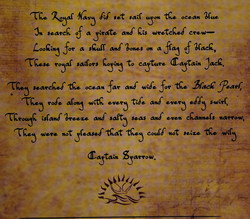 The Royal Navy did set sail upon the ocean blue
In search of a pirate and his wretched crew—
Looking for a skull and bones on a flag of black,
These royal sailors hoping to capture Captain Jack.
They searched the ocean far and wide for the Black Pearl,
They rode along with every tide and every eddy swirl,
Through island breeze and salty seas and even channels narrow,
They were not pleased that they could not seize the wily
Captain Sparrow.